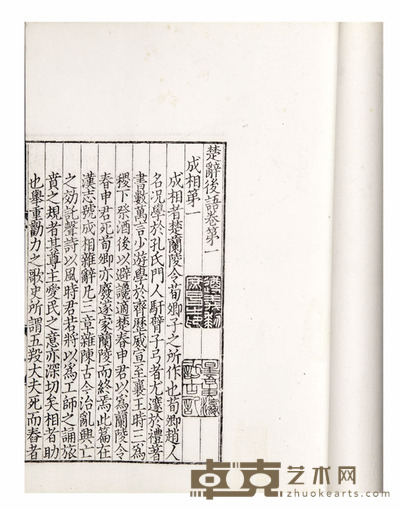 楚辭後語卷第一
成相第一
成相者楚蘭陵令荀卿子之所作也荀卿趙人
名况學於孔氏門人馯臂子弓者尤邃於禮著
書數萬言少遊學於齊歷威宣至襄王時三爲
稷下祭酒後以避讒適楚春申君以爲蘭陵令
春申君死荀卿亦廢遂家蘭陵而終焉此篇在
漢志號成相雜辭凡三章雜陳古今治亂興亡
之効託聲詩以風時君若將以爲工師之誦旅
賁之規者其尊主愛民之意亦深切矣相者助
也舉重勸力之歌史所謂五羖大夫死而舂者
卓克艺术网
zhuokearts.com